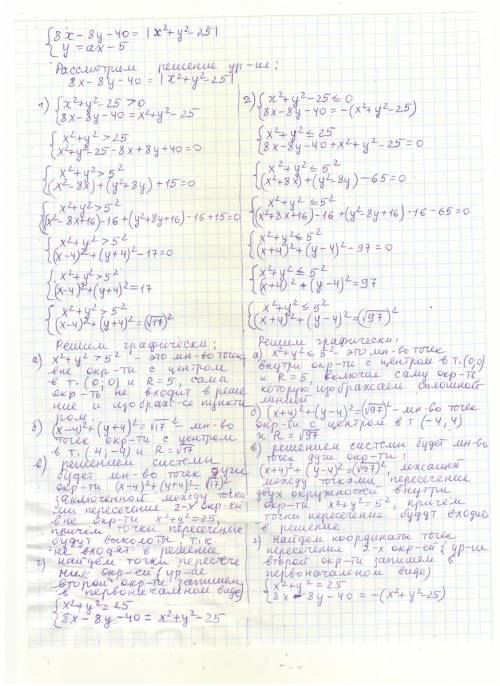 { 8x - 8y - 40 = |x² + y² - 25|
{ y = ax - 5
Рассмотрим решение ур-ия:
8x - 8y - 40 = |x² + y² - 25|
1) { x² + y² - 25 > 0
{ 8x - 8y - 40 = x² + y² - 25
{ x² + y² > 25
{ x² + y² - 25 - 8x + 8y + 40 = 0
{ x² + y² > 5²
{ (x² - 8x) + (y² + 8y) + 15 = 0
{ x² + y² > 5²
{ (x² - 8x + 16) - 16 + (y² + 8y + 16) - 16 + 15 = 0
{ x² + y² > 5²
{ (x-4)² + (y+4)² - 17 = 0
{ x² + y² > 5²
{ (x-4)² + (y+4)² = 17
{ x² + y² > 5²
{ (x-4)² + (y+4)² = (√17)²
Решим графически:
а) x² + y² > 5² - это мн-во точек
вне окр-ти с центром
в т. (0; 0) и R = 5, сама
окр-ть не входит в реше
ние и изображ-ся пункти
ром.
б) (x-4)² + (y+4)² = √17² мн-во
точек окр-ти с центром
в т. (4; -4) и R = √17
в) решением системы
будет мн-во точек дуги
окр-ти (x-4)² + (y+4)² = (√17)²
заключенной между точка
ми пересечения 2-х окр-ей
вне окр-ти x² + y² = 25,
причем точки пересечения
будут выколоты т.к.
не входят в решение
г) найдем точки пересече
ния окр-ей (ур-ие
второй окр-ти запишем
в первоначальном виде)
{ x² + y² = 25
{ 8x - 8y - 40 = x² + y² - 25
2) { x² + y² - 25 ≤ 0
{ 8x - 8y - 40 = -(x² + y² - 25)
{ x² + y² ≤ 25
{ 8x - 8y - 40 + x² + y² - 25 = 0
{ x² + y² ≤ 5²
{ (x² + 8x) + (y² - 8y) - 65 = 0
{ x² + y² ≤ 5²
{ (x² + 8x + 16) - 16 + (y² - 8y + 16) - 16 - 65 = 0
{ x² + y² ≤ 5²
{ (x+4)² + (y-4)² - 97 = 0
{ x² + y² ≤ 5²
{ (x+4)² + (y-4)² = 97
{ x² + y² ≤ 5²
{ (x+4)² + (y-4)² = (√97)²
Решим графически:
а) x² + y² ≤ 5² это мн-во точек
внутри окр-ти с центром в т. (0; 0)
и R = 5, включая саму окр-ть
которую изображаем сплошной
линией
б) (x+4)² + (y-4)² = (√97)² - мн-во точек
окр-ти с центром в т (-4; 4)
и R = √97
в) решением системы будет мн-во
точек дуги окр-ти:
(x+4)² + (y-4)² = (√97)², лежащей
между точками пересечения
двух окружностей внутри
окр-ти x² + y² = 5², причем
точки пересечения будут входить
в решение.
г) найдем координаты точек
пересечения 2-х окр-ей (ур-ие
второй окр-ти запишем в
первоначальном виде)
{ x² + y² = 25
{ 8x - 8y - 40 = -(x² + y² - 25)